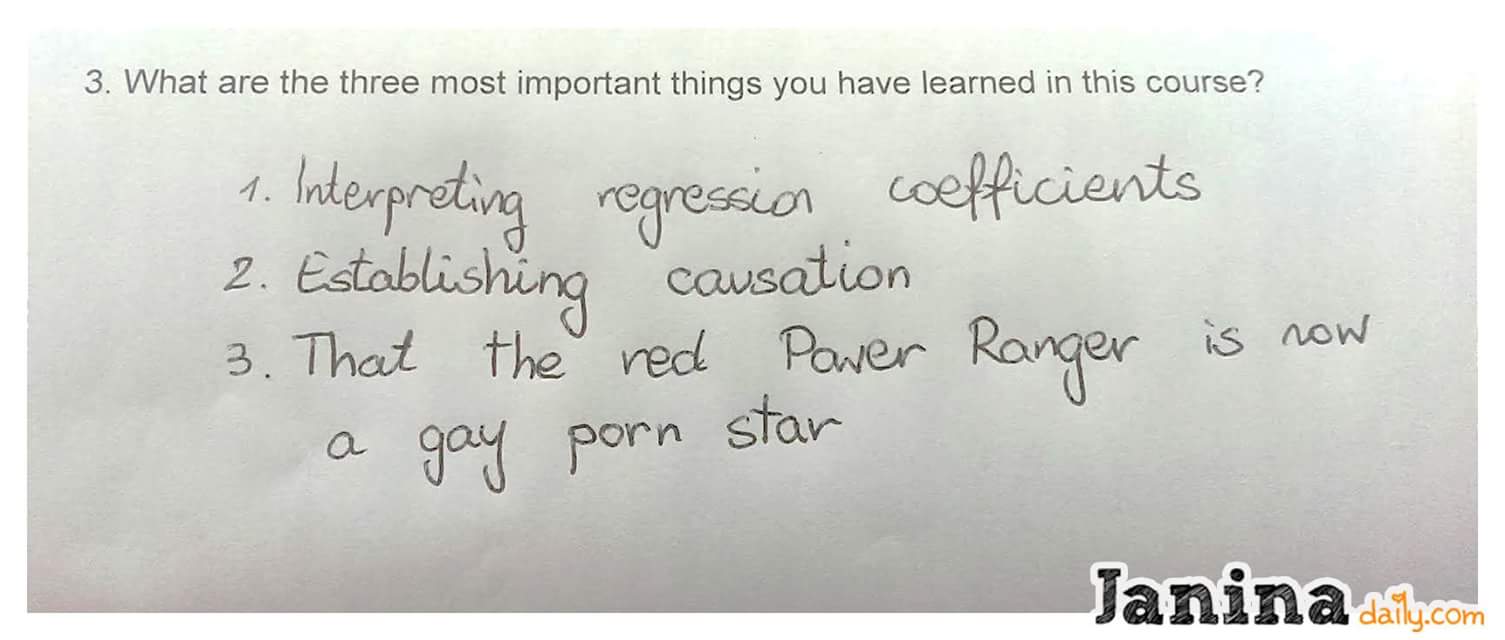 3. What are the three most important things you have learned in this course?
1. Interpreting regression coefficients
2. Establishing causation
3. That the red Power Ranger is now
a gay porn star
Janina daily.com